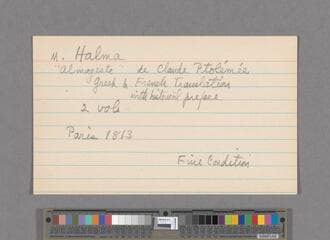 M. Halma
"Almageste" de Claude Ptolémée
Greek & French Translation
with historical preface
2 vols
Paris 1813
Fine Condition